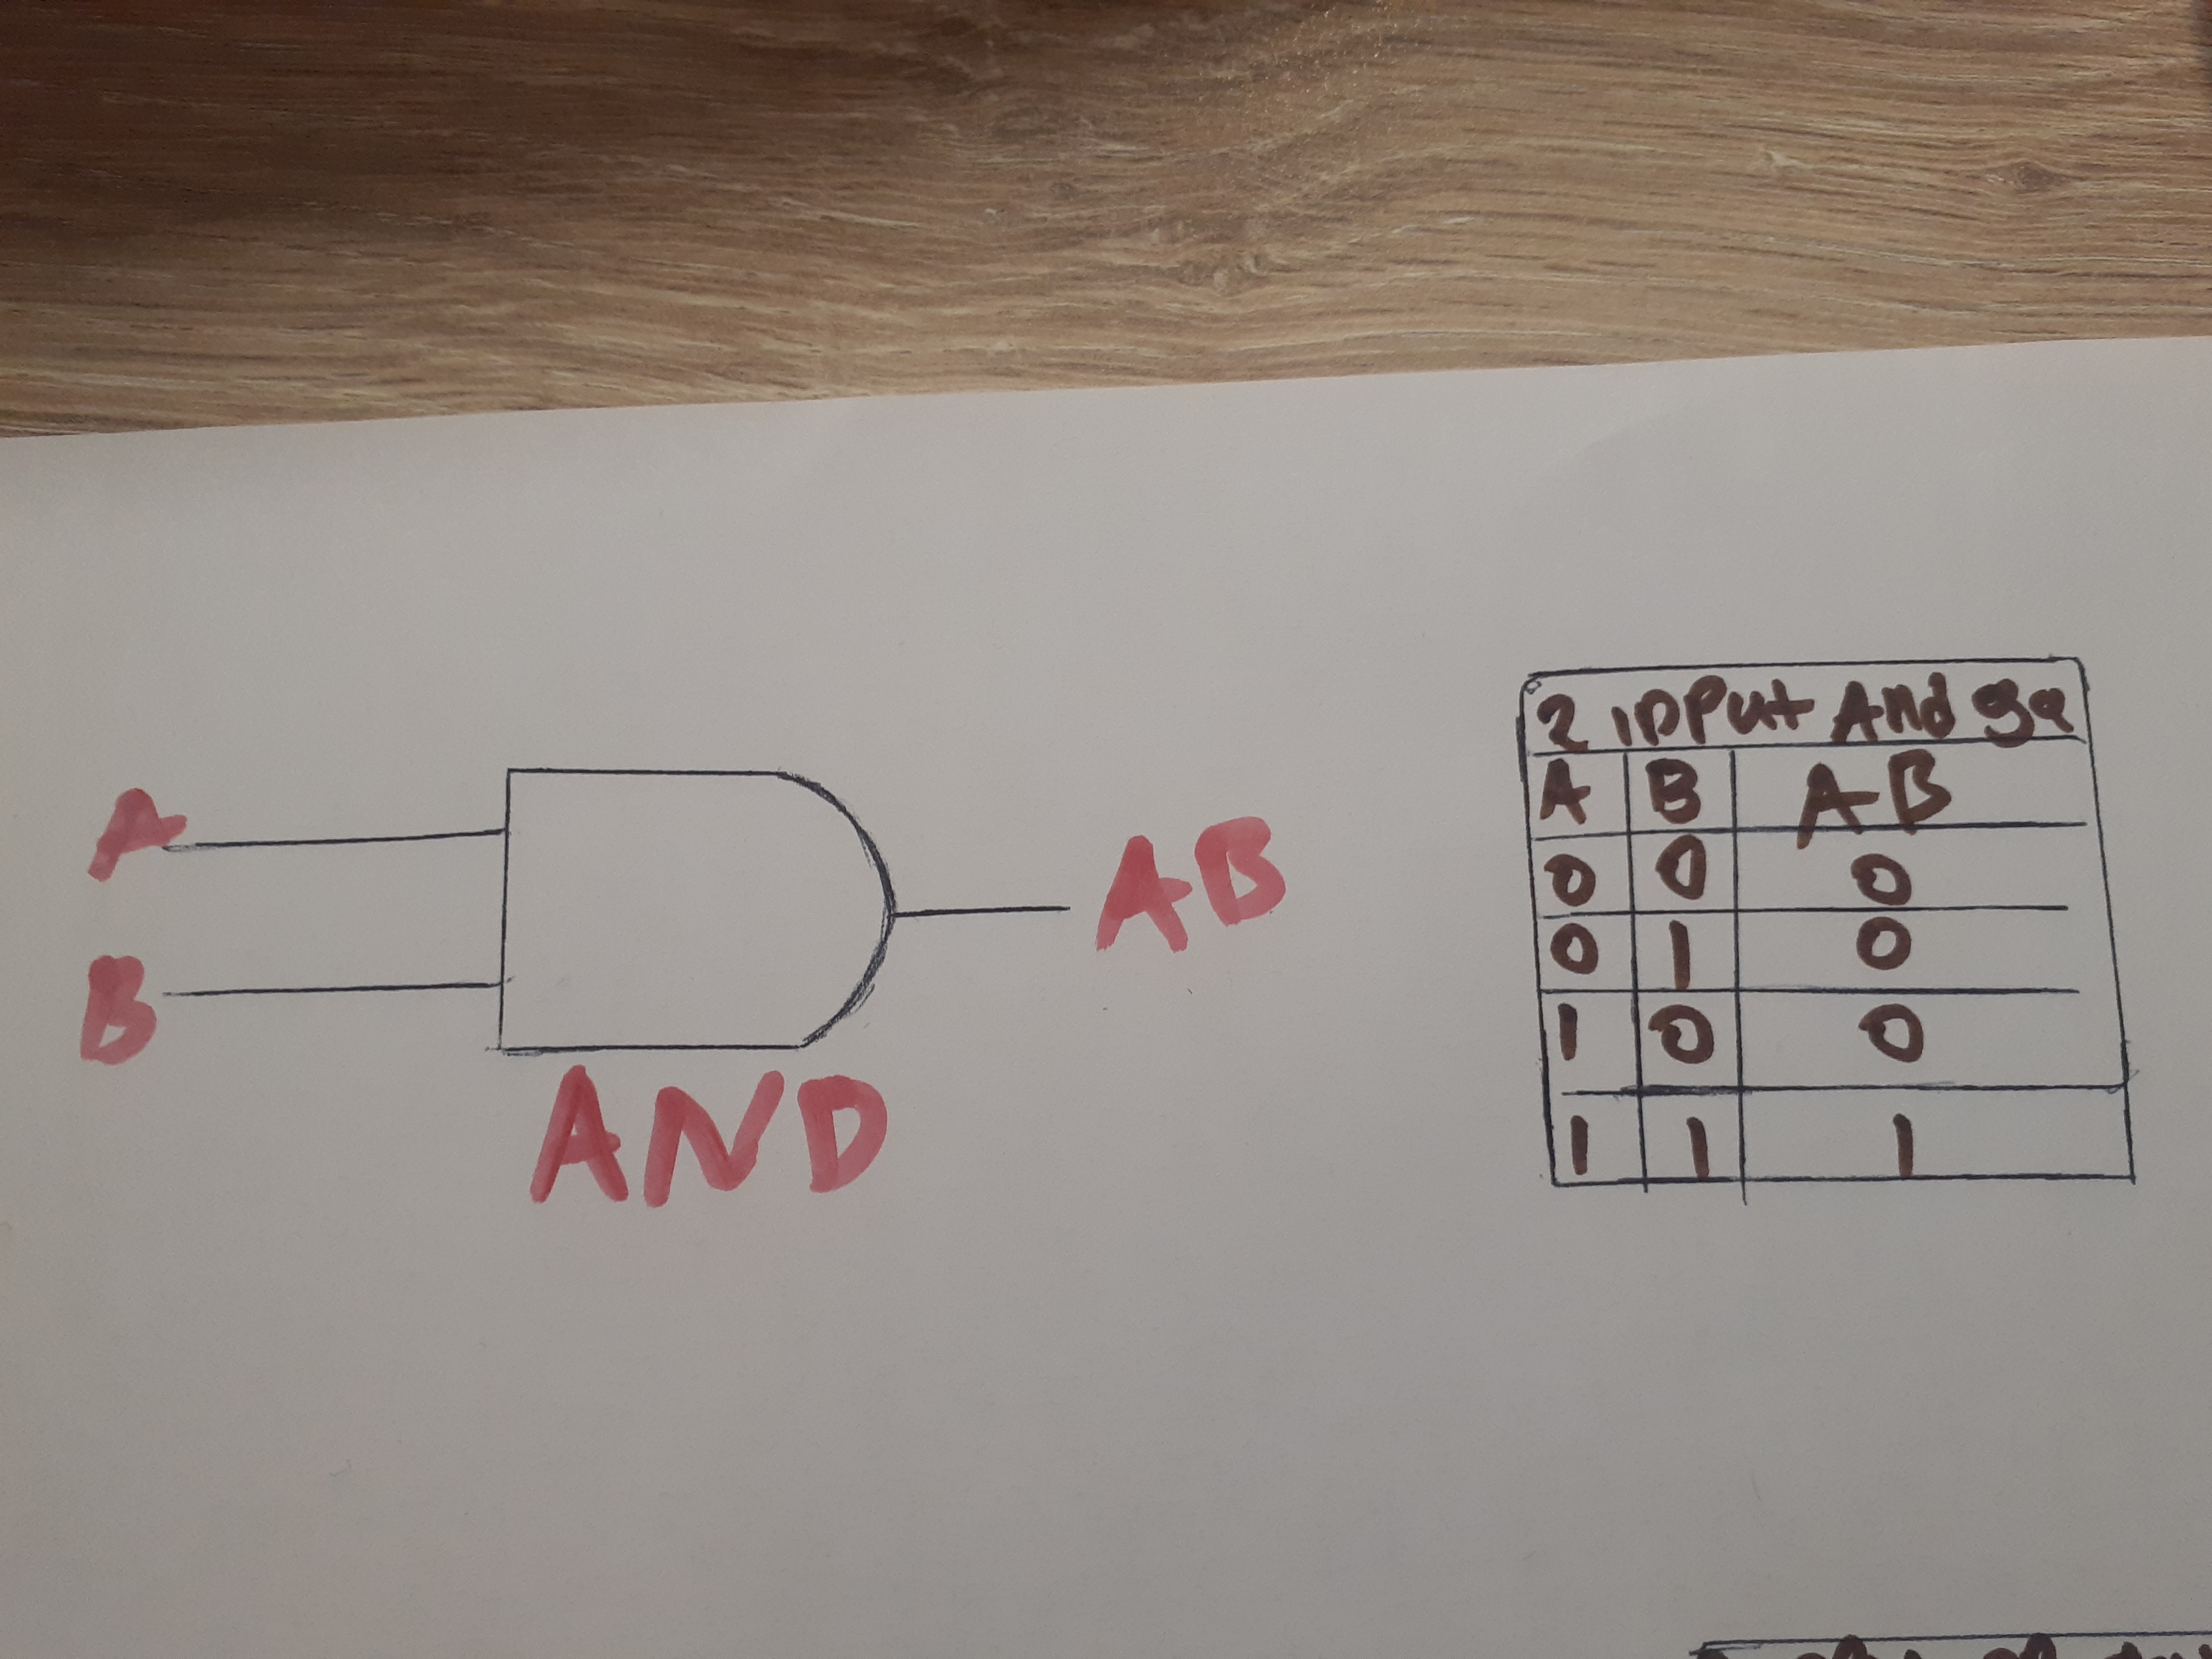 A
B
AB
AND
2 input And ga
A B AB
0 0 0
0 1 0
1 0 0
1 1 1